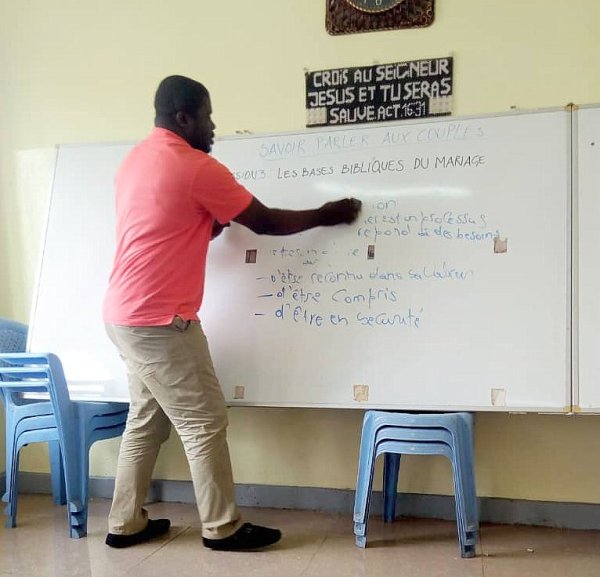 CROIS AU SEIGNEUR
JESUS ET TU SERAS
SAUVE.ACT.16:31
SAVOIR PARLER AUX COUPLES
LES BASES BIBLIQUES DU MARIAGE
est un processus
repond à des besoins
- d'être reconnu dans sa valeur
- d'être compris
- d'être en securité